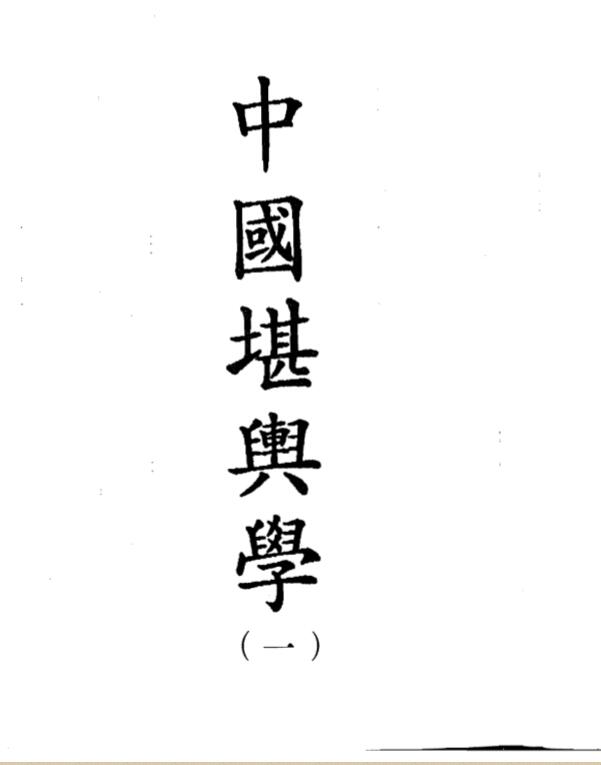 中國堪輿學
(一)